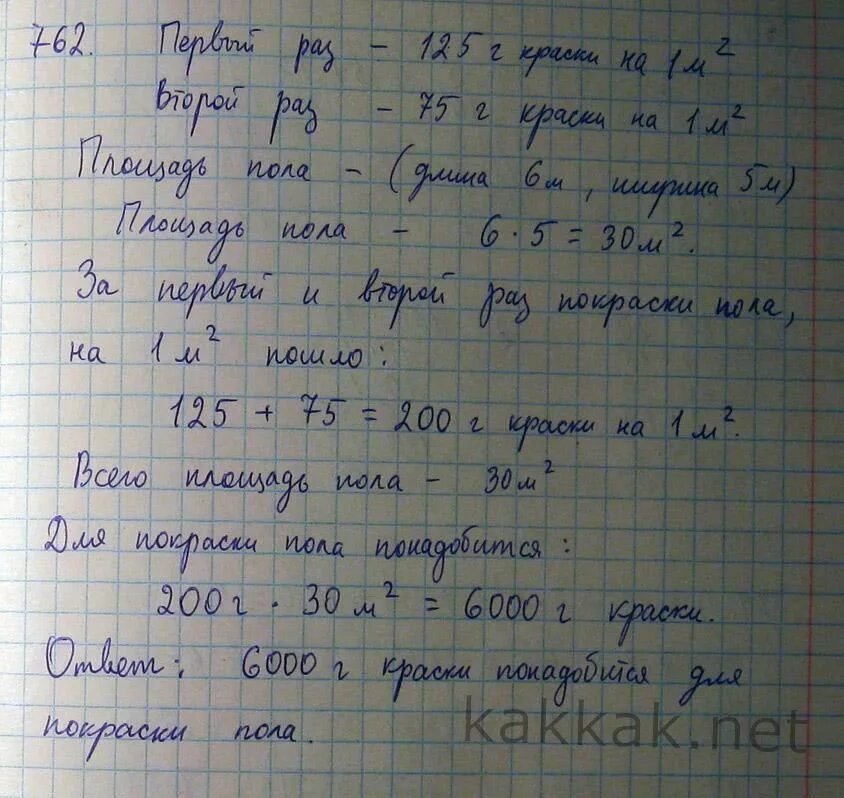 762. Первый раз - 125 г краски на 1 м²
Второй раз - 75 г краски на 1 м²
Площадь пола - (длина 6м, ширина 5м)
Площадь пола - 6 · 5 = 30 м².
За первый и второй раз покраски пола,
на 1 м² пошло:
125 + 75 = 200 г краски на 1 м².
Всего площадь пола - 30 м²
Для покраски пола понадобится:
200 г · 30 м² = 6000 г краски.
Ответ: 6000 г краски понадобится для
покраски пола.
kakkak.net